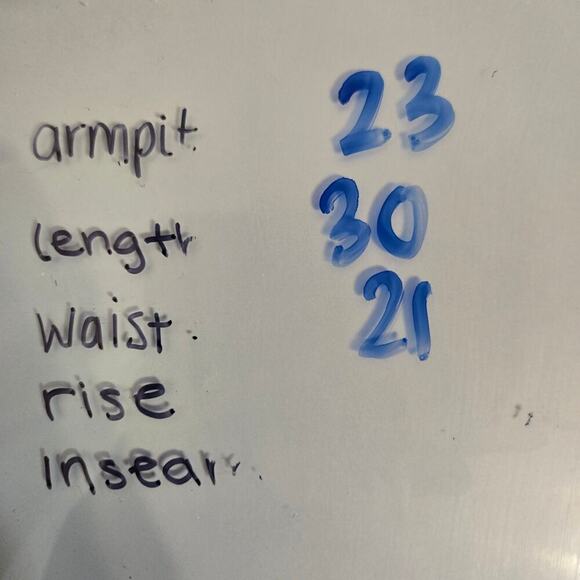 armpit 23
length 30
waist 21
rise
Inseam